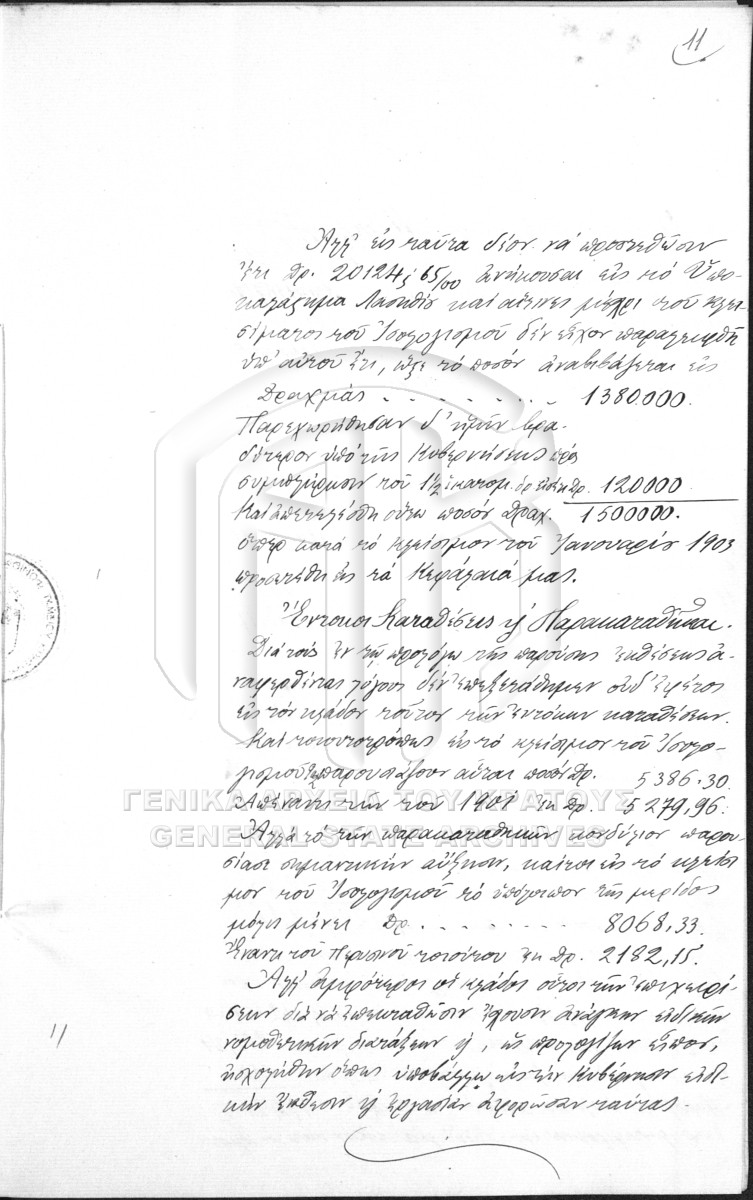 11
Ἀλλ' εἰς ταῦτα δέον νά προστεθῶσιν
ἔτι Δρ. 20124, 65/00 ἀνήκουσαι εἰς τό Ὑπο-
κατάστημα Λασηθίου καί αἵτινες μέχρι τοῦ κλει-
σίματος τοῦ Ἰσολογισμοῦ δέν εἶχον παραληφθῆ
ὑπ' αὐτοῦ ἔτι, ὥστε τό ποσόν ἀναβιβάζεται εἰς
Δραχμάς - - - - - - - - 1380.000.
Παρεχωρήθησαν δ' ἡμῖν βρα-
δύτερον ὑπό τῆς Κυβερνήσεως πρός
συμπλήρωσιν τοῦ 1 1/2 ἑκατομ. δρ. Δρ. 120000
Καί ἀπετελέσθη οὕτω ποσόν Δραχ. 1500000.
ὅπερ κατά τό κλείσιμον τοῦ Ἰανουαρίου 1903
προσετέθη εἰς τά Κεφάλαιά μας.
Ἔντοκοι Καταθέσεις ἤ Παρακαταθῆκαι.
Διά τούς ἐν τῷ προλόγῳ τῆς παρούσης ἐκθέσεως ἀ-
ναφερθέντας λόγους δέν ἐπεξετάθημεν οὐδ' ἐφέτος
εἰς τόν κλάδον τοῦτον τῶν ἐντόκων καταθέσεων.
Καί τοιουτοτρόπως εἰς τό κλείσιμον τοῦ Ἰσολο-
γισμοῦ παρουσιάζουν αὗται ποσόν Δρ. 5386.30.
Ἀπέναντι τῶν τοῦ 1901 ἐκ Δρ. 5279,96.
Ἀλλά τό τῶν παρακαταθηκῶν κονδύλιον παρου-
σίασε σημαντικήν αὔξησιν, καίτοι εἰς τό κλείσι-
μον τοῦ Ἰσολογισμοῦ τό ὑπόλοιπον τῆς μερίδος
μόλις μένει Δρ. - - - - - - - - 8068,33.
Ἔναντι τοῦ Περυσινοῦ τοιούτου ἐκ Δρ. 2182,15.
Ἀλλ' ἀμφότεροι οἱ κλάδοι οὗτοι τῶν ἐπιχειρή-
σεων διά νά ἐπεκταθῶσιν ἔχουσιν ἀνάγκην εἰδικῶν
νομοθετικῶν διατάξεων ἤ, ὡς προλογίζων εἶπον,
ἠσχολήθην ὅπως ὑποβάλλω εἰς τήν Κυβέρνησιν εἰδι-
κήν ἔκθεσιν ἤ ἐργασίαν ἀφορῶσαν ταύτας.
11
ΓΕΝΙΚΑ ΑΡΧΕΙΑ ΤΟΥ ΚΡΑΤΟΥΣ
GENERAL STATE ARCHIVES